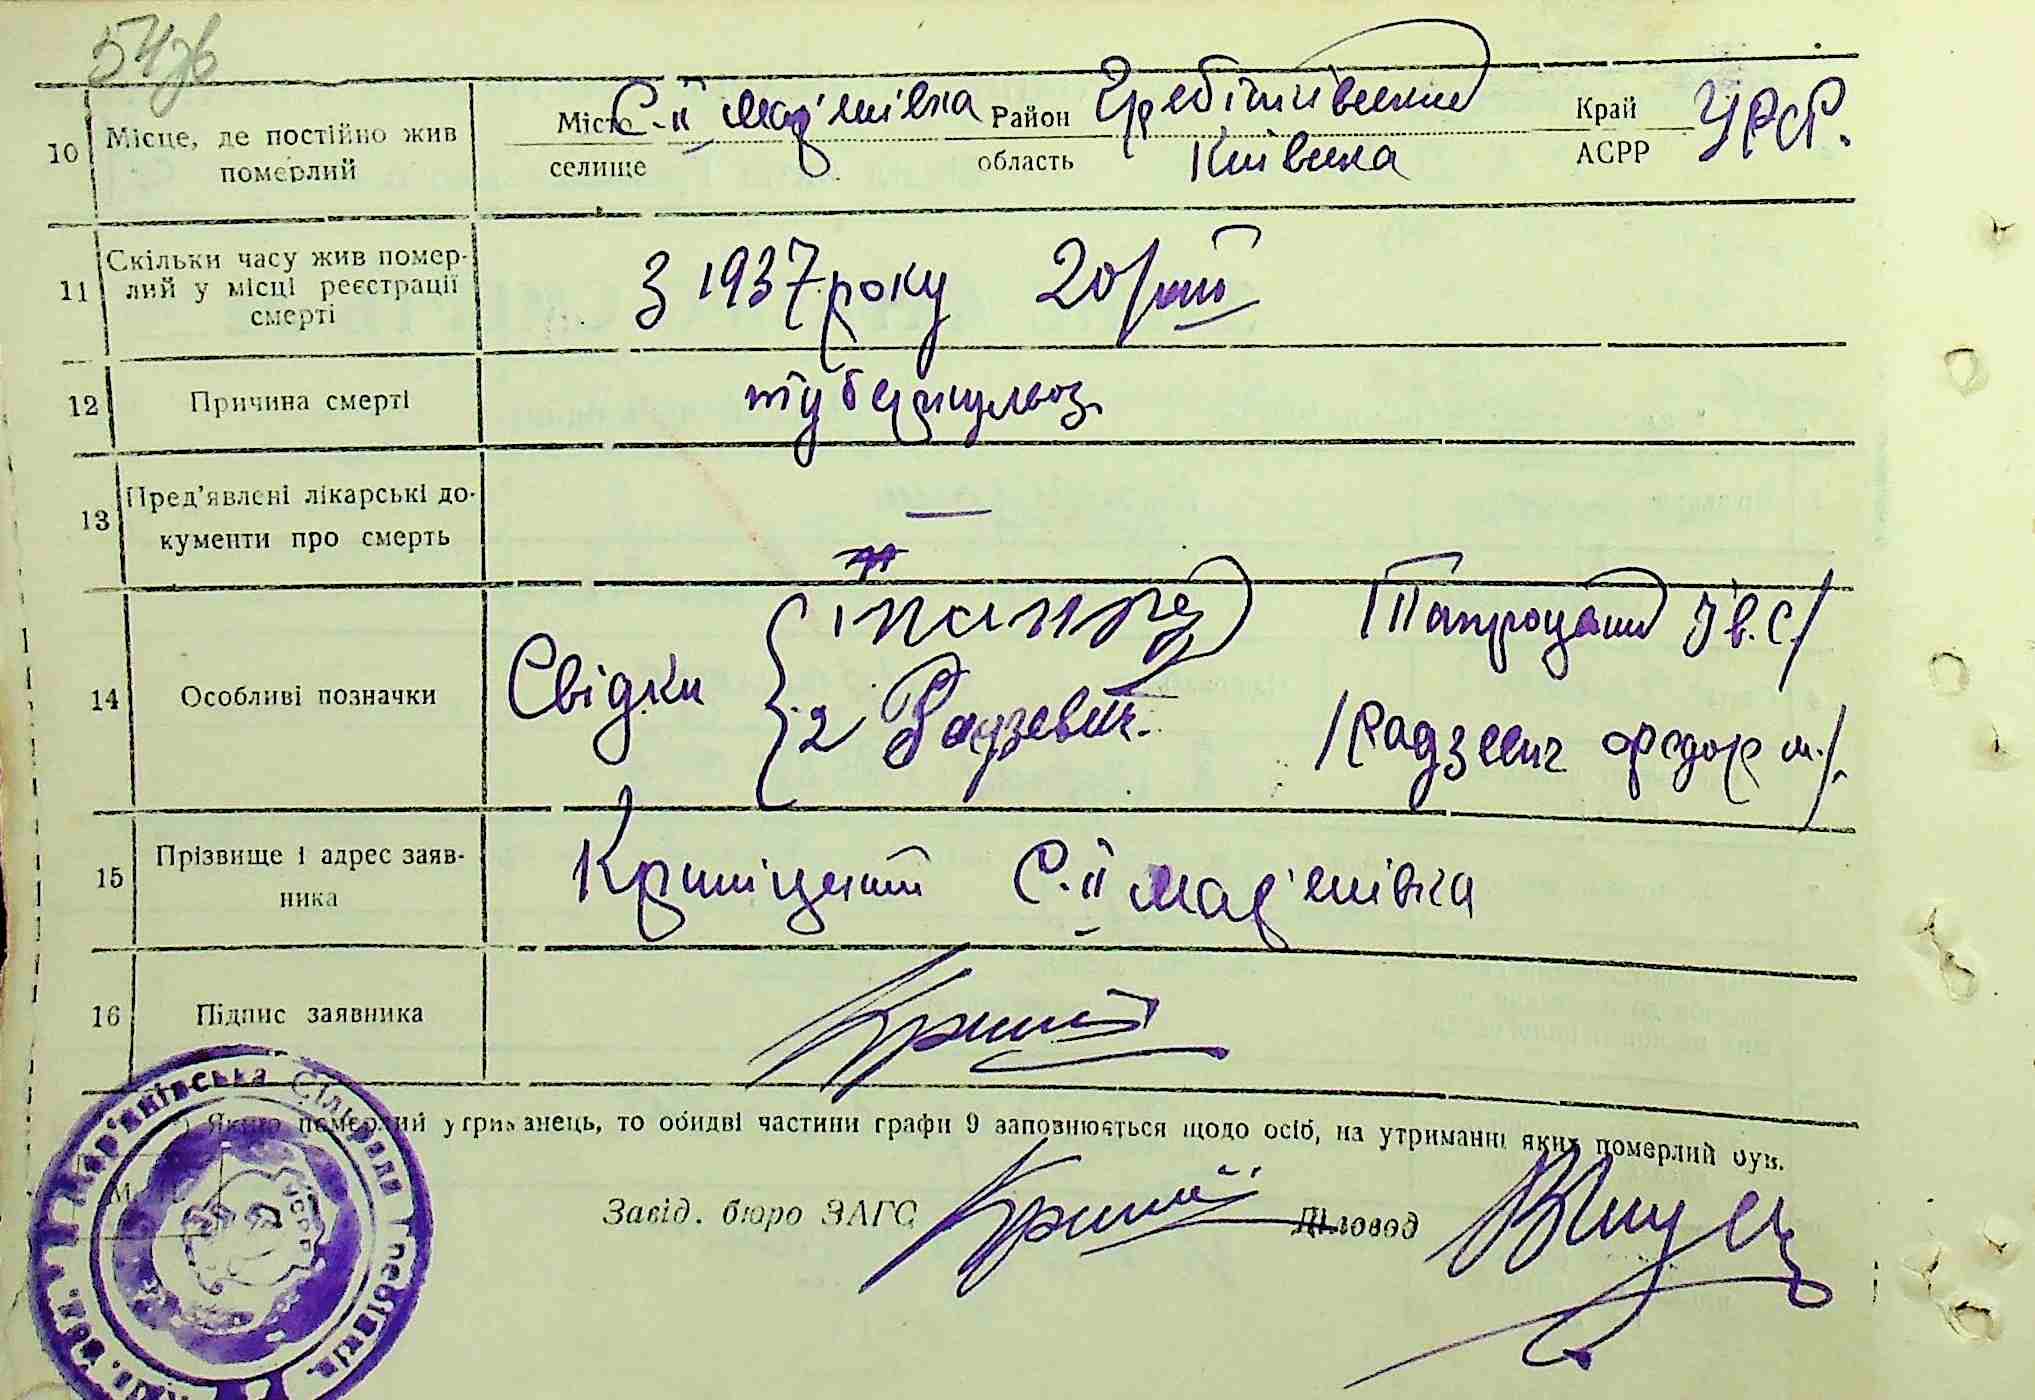 54 зв
10 Місце, де постійно жив померлий
Місто селище С. ІІ Мар'янівка Район область Гребінківський Київська Край АСРР УРСР.
11 Скільки часу жив помер-
лий у місці реєстрації
смерті
З 1937 року 20/VIII
12 Причина смерті туберкульоз
13 Пред'явлені лікарські до-
кументи про смерть —
14 Особливі позначки Свідки
1 /Папроцький Ів. С./
2 Радзевич. /Радзевич Федор М./.
15 Прізвище і адрес заяв-
ника
С. ІІ Мар'янівка
16 Підпис заявника
Якщо померлий утриманець, то обидві частини графи 9 заповнюється щодо осіб, на утриманні яких померлий був.
М.
Завід. бюро ЗАГС Діловод
Мар'янівська Сільрада Гребінків.
УСРР